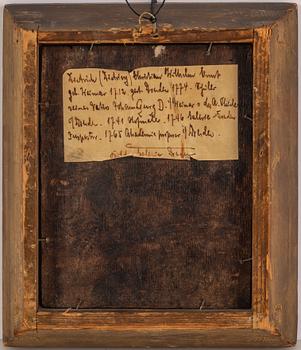 Dietrich (Dietricy) Christian Wilhelm Ernst
geb. Weimar 1712 gest. Dresden 1774. Schüler
seines Vaters Johann Georg D. i/ Weimar u. des A. Thiele
i/ Dresden. 1741 Hofmaler. 1746 Galerie
Inspektor. 1765 Akademie professor i/ Dresden.